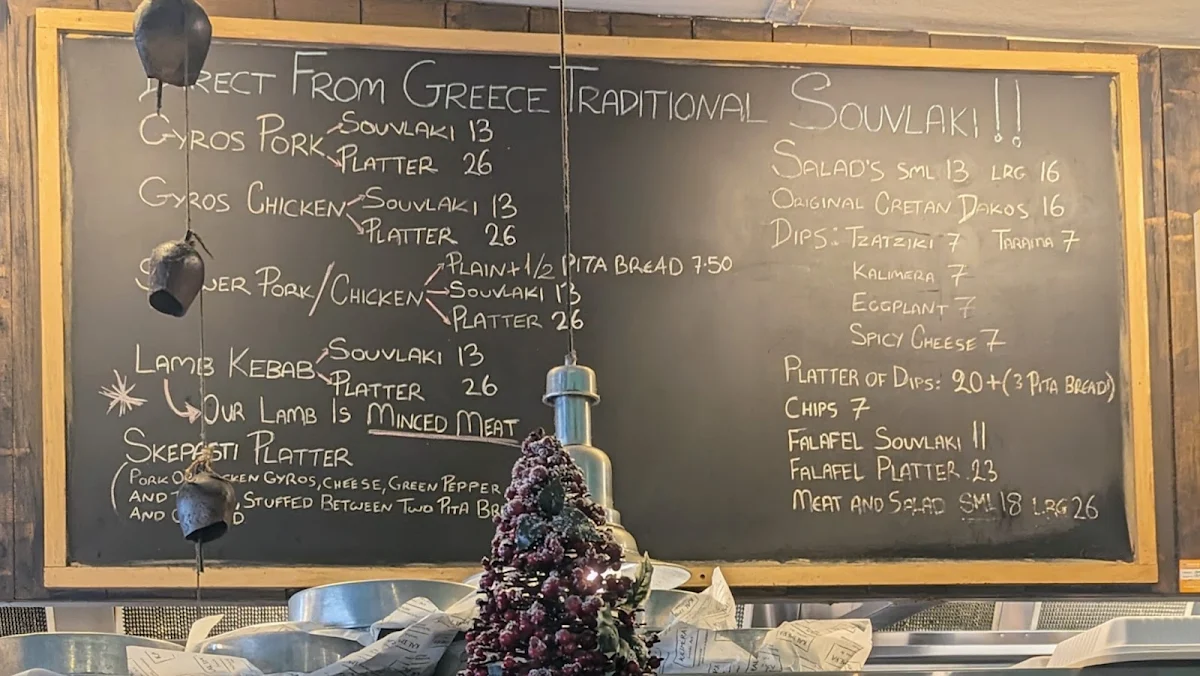 DIRECT FROM GREECE TRADITIONAL SOUVLAKI!!
GYROS PORK SOUVLAKI 13
PLATTER 26
GYROS CHICKEN SOUVLAKI 13
PLATTER 26
PORK/CHICKEN PLAIN + 1/2 PITA BREAD 7.50
SOUVLAKI 13
PLATTER 26
LAMB KEBAB SOUVLAKI 13
PLATTER 26
OUR LAMB IS MINCED MEAT
SKEPASTI PLATTER
(PORK GYROS, CHEESE, GREEN PEPPER
AND , STUFFED BETWEEN TWO PITA
AND
SALAD'S SML 13 LRG 16
ORIGINAL CRETAN DAKOS 16
DIPS: TZATZIKI 7 TARAMA 7
KALIMERA 7
EGGPLANT 7
SPICY CHEESE 7
PLATTER OF DIPS: 20+(3 PITA BREAD!)
CHIPS 7
FALAFEL SOUVLAKI 11
FALAFEL PLATTER 23
MEAT AND SALAD SML 18 LRG 26